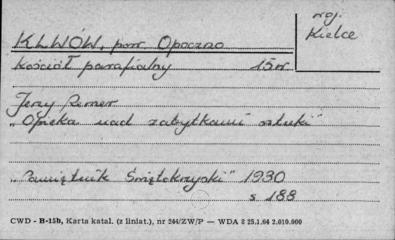 KLWÓW, pow. Opoczno
woj. Kielce
kościół parafialny 15 w.
Jerzy Remer
"Opieka nad zabytkami sztuki"
"Pamiętnik Świętokrzyski" 1930
s 188
CWD - B-15b, Karta katal. (z liniat.), nr 244/ZW/P — WDA 2 25.1.64 2.010.000